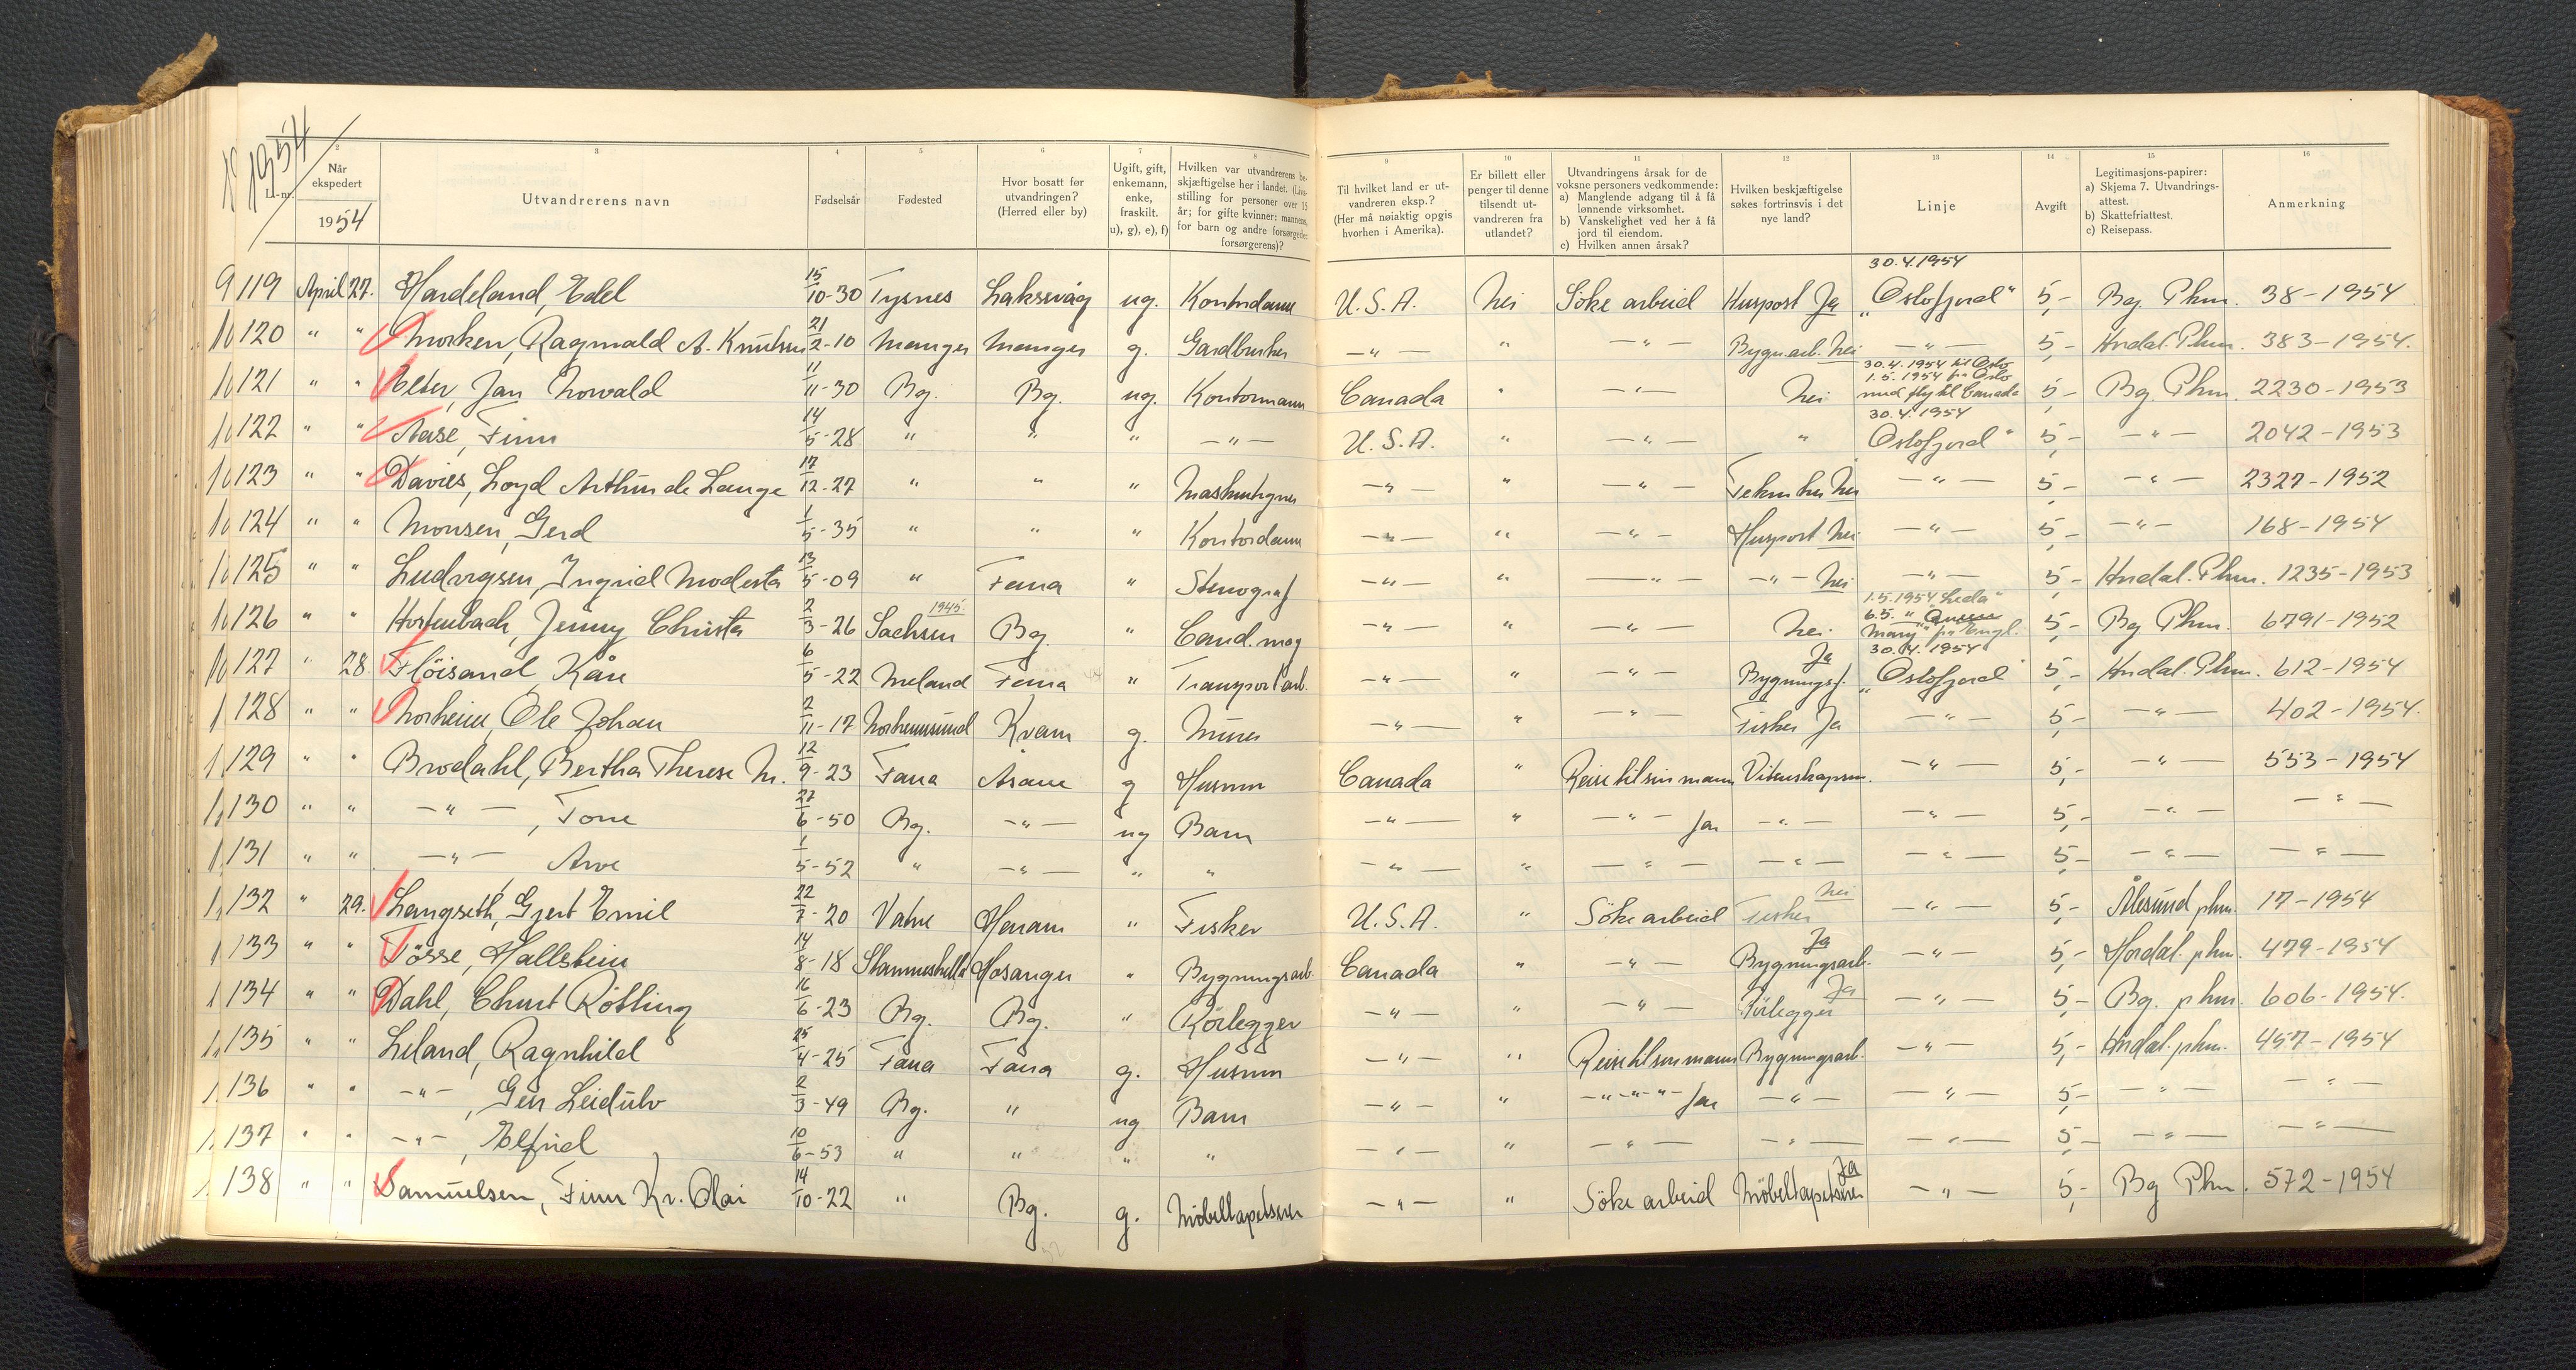 1954
L.-nr.
2
Når ekspedert
1954
3
Utvandrerens navn
4
Fødselsår
5
Fødested
6
Hvor bosatt før utvandringen? (Herred eller by)
7
Ugift, gift, enkemann, enke, fraskilt. u), g), e), f)
8
Hvilken var utvandrerens beskjæftigelse her i landet. (Livsstilling for personer over 15 år; for gifte kvinner: mannens, for barn og andre forsørgede: forsørgerens)?
9
Til hvilket land er utvandreren eksp.? (Her må nøiaktig opgis hvorhen i Amerika).
10
Er billett eller penger til denne tilsendt utvandreren fra utlandet?
11
Utvandringens årsak for de voksne personers vedkommende:
a) Manglende adgang til å få lønnende virksomhet.
b) Vanskelighet ved her å få jord til eiendom.
c) Hvilken annen årsak?
12
Hvilken beskjæftigelse søkes fortrinsvis i det nye land?
13
Linje
14
Avgift
15
Legitimasjons-papirer:
a) Skjema 7. Utvandringsattest.
b) Skattefriattest.
c) Reisepass.
16
Anmerkning
119 April 27. Hardeland, Edel 15/10-30 Tysnes Laksevåg ug. Kontordame U.S.A. Nei Söke arbeid Huspost Ja 30.4.1954 „Oslofjord" 5,- Bg Phm. 38-1954
120 " " Morken, Ragnvald A. Knutsen 21/2-10 Manger Manger g. Gardbruker -"- " -"- Bygn.arb. Nei -"- 5,- Hndal. Phm. 383-1954.
121 " " Elter, Jan Norvald 11/11-30 Bg. Bg. ug. Kontormann Canada " -"- Nei 30.4.1954 til Oslo 1.5.1954 fra Oslo med fly til Canada 5,- Bg. Phm. 2230-1953
122 " " Aase, Finn 14/5-28 " " " -"- U.S.A. " -"- " 30.4.1954 Oslofjord" 5,- -"- 2042-1953
123 " " Davies, Loyd Arthur de Lange 17/12-27 " " " Maskintegner -"- " -"- Tekniker Nei -"- 5,- -"- 2327-1952
124 " " Monsen, Gerd 1/5-35 " " " Kontordame -"- " -"- Huspost Nei -"- 5,- -"- 168-1954
125 " " Ludvigsen, Ingrid Modesta 13/5-09 " Fana " Stenograf -"- " -"- -"- Nei -"- 5,- Hndal. Phm. 1235-1953
126 " " Hortenbach, Jenny Christa 2/3-26 Sachsen 1945. Bg. " Cand.mag -"- " -"- Nei. 1.5.1954 Leda" 6.5. " "Queen Mary" fra Engl. 5,- Bg Phm. 6791-1952
127 " 28. Flöisand Kåre 6/5-22 Meland Fana " Transportarb. -"- " -"- Bygningsf. Ja 30.4.1954 „Oslofjord" 5,- Hndal. Phm. 612-1954
128 " " Norheim, Ole Johan 2/11-17 Norheimsund Kvam g. Murer -"- " -"- Fisker Ja -"- 5,- -"- 402-1954.
129 " " Brodahl, Bertha Therese M. 12/9-23 Fana Åsane g Husmor Canada " Reise til sin mann Vitenskapsm. -"- 5,- -"- 553-1954
130 " " -"-, Tone 27/6-50 Bg. -"- ug Barn -"- " -"- far -"- -"- 5,- -"- -"-
131 " " -"-, Arve 1/5-52 " -"- " " -"- " -"- -"- -"- 5,- -"- -"-
132 " 29. Langseth, Gjert Emil 22/7-20 Vatne Haram " Fisker U.S.A. " Söke arbeid Fisker Nei -"- 5,- Ålesund phm. 17-1954
133 " " Tösse, Hallstein 14/8-18 Stanneshella Hosanger " Bygningsarb. Canada " -"- Bygningsarb. Ja -"- 5,- Hordal. phm. 479-1954
134 " " Dahl, Christ Rötting 16/6-23 Bg. Bg. " Rörlegger -"- " -"- Rörlegger Ja -"- 5,- Bg. phm. 606-1954.
135 " " Leland, Ragnhild 25/4-25 Fana Fana g. Husmor -"- " Reise til sin mann Bygningsarb. -"- 5,- Hndal. phm. 457-1954
136 " " -"-, Geir Leidulv 2/3-49 Bg. " ug Barn -"- " -"-"-"- far -"- -"- 5,- -"- -"-
137 " " -"-, Elfrid 10/6-53 " " " " -"- " -"- -"- -"- 5,- -"- -"-
138 " " Samuelsen, Finn Kr. Olai 14/10-22 " Bg. g. Möbeltapetserer -"- " Söke arbeid Möbeltapetserer Ja -"- 5,- Bg Phm. 572-1954